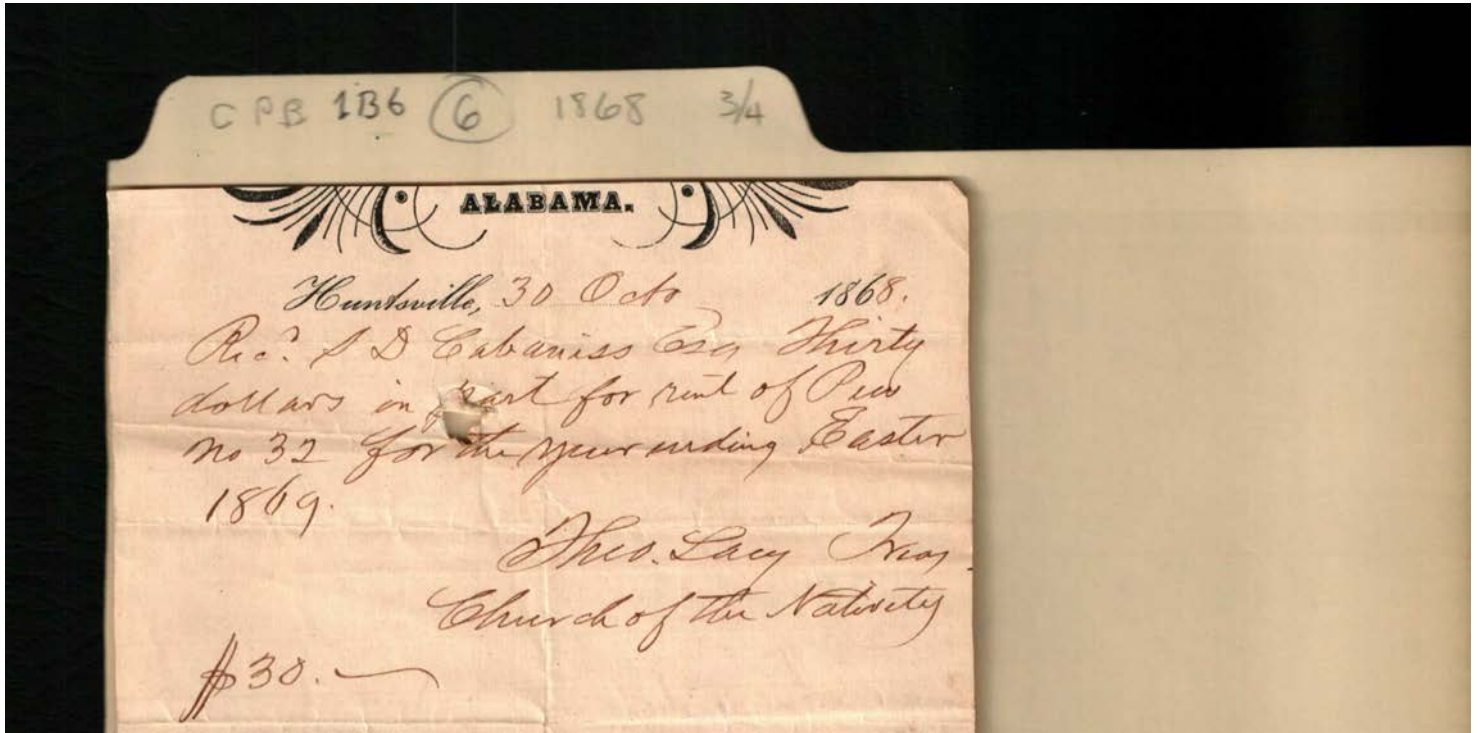 CPB 1B6 6 1868 3/4
ALABAMA.
Huntsville, 30 Octo 1868.
Rec? S D Cabaniss Esq Thirty
dollars in part for rent of Pew
no 32 for the year ending Easter
1869.
Theo. Lacy Treas.
Church of the Nativity
$30.—